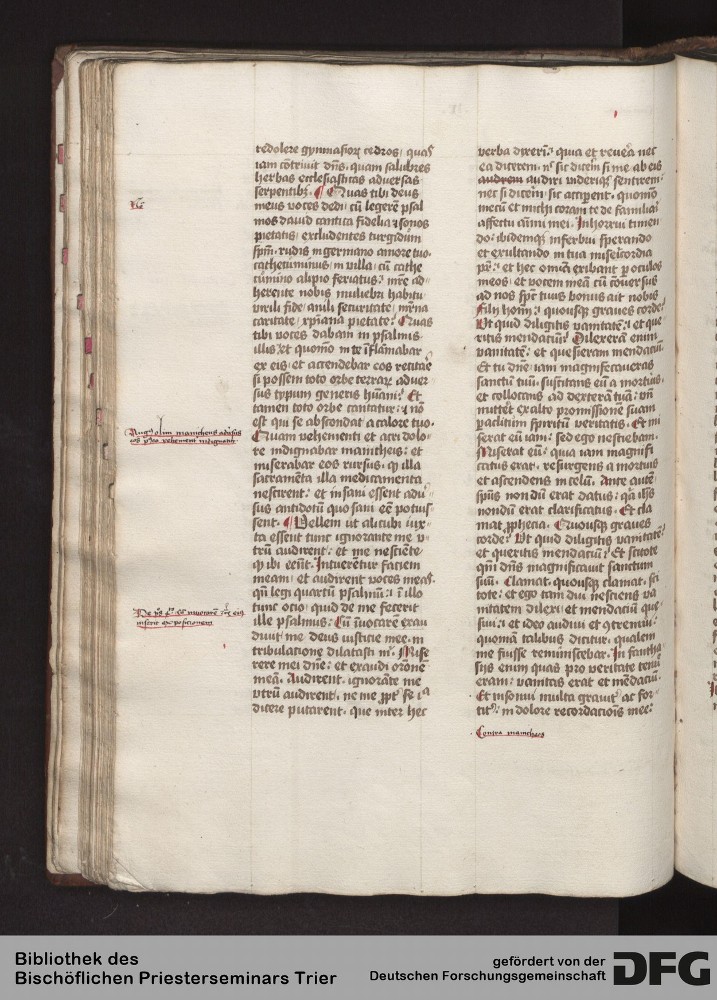 redolere gymnasioꝝ cedros, quas
iam cōtriuit dn̄s. quam salubres
herbas ecclesiasticas aduersas
serpentibꝫ. Quas tibi deus
meus voces dedi, cū legerē psal
mos dauid cantica fidelia ⁊ sonos
pietatis, excludentes turgidum
spm̄. rudis in germano amore tuo.
cathecuminus, in villa, cum cathe
cumino alipio feriatus, mr̄e ad
herente nobis, muliebri habitu
virili fide, anili securitate, mr̄na
caritate, xpiana pietate. Quas
tibi voces dabam in psalmis
illis, et quomō in te īflamabar
ex eis, et accendebar eos recitare
si possem toto orbe terraꝝ aduer
sus typum generis hūani. Et
tamen toto orbe cantātur, ⁊ nō
est qui se abscondat a calore tuo.
Quam vehementi et acri dolo
re indignabar manicheis, et
miserabar eos rursus, ꝙ illa
sacramēta illa medicamenta
nescirent, et insani essent adu
sus antidotū quo sani eē potuis
sent. Vellem ut alicubi iux
ta essent tunc ignorante me v
trū audirent, et me nesciēte
ꝙ ibi eēnt. Intuerētur faciem
meam, et audirent voces meas.
qn̄ legi quartū psalmū, ī illo
tunc ocio, quid de me fecerit
ille psalmus. Cū īuocarē exau
diuit me deus iusticie mee. in
tribulatione dilatasti m. Mise
rere mei dn̄e, et exaudi oronē
meā. Audirent, ignorāte me
vtrū audirent, ne me ꝓpt se ia
dicere putarent, que inter hec
Aug9 olim manicheus aduersus
eos vehementi indignatur
iusticie expositionem
verba dixerī. quia et reuera nec
ea dicerem, n sic dicerē si me ab eis
audirem audiri viderique sentirem.
nec si dicerē, sic acciperent, quomō
mecū et michi coram te de familiai
affectu animi mei. Inhorrui timen
do. ibidemque inferbui sperando
et exultando in tua misericordia
pr̄. et hec omnia exibant p oculos
meos, et vocem meā cū conuersus
ad nos sp̄c tuus bonus ait nobis
Filij homī, quousque graues corde.
Vt quid diligitis vanitatē, et que
ritis mendaciū. Dilexeram enim
vanitatē, et quesieram mendaciū.
Et tu dn̄e, iam magnificaueras
sanctū tuū, suscitans eū a mortuis,
et collocans ad dexterā tuā, vn̄
mittet ex alto promissionē suam
paraclitum spiritū veritatis. Et mi
serat eū iam, sed ego nesciebam.
Miserat eū, quia iam magnifi
catus erat, resurgens a mortuis
et ascendens in celū. Ante autē
spūs nondū erat datus, qa ih̄s
nondū erat clarificatus. Et cla
mat ꝓphecia. Quousque graues
corde. Vt quid diligitis vanitatē.
et queritis mendaciū. Et scitote
qm̄ dn̄s magnificauit sanctum
suū. Clamat, quousque, clamat, sci
tote, et ego tam diu nesciens va
nitatem dilexi, et mendaciū que
siui, et ideo audiui et ɔtremui.
quoniā talibus dicitur, qualem
me fuisse reminiscebar. In fantas
iis enim quas pro veritate tenu
eram, vanitas erat et mēdaciū.
Et insonui multa grauit ac for
tit, in dolore recordaciōis mee.
Contra manicheos
Bibliothek des
Bischöflichen Priesterseminars Trier
gefördert von der
Deutschen Forschungsgemeinschaft
DFG